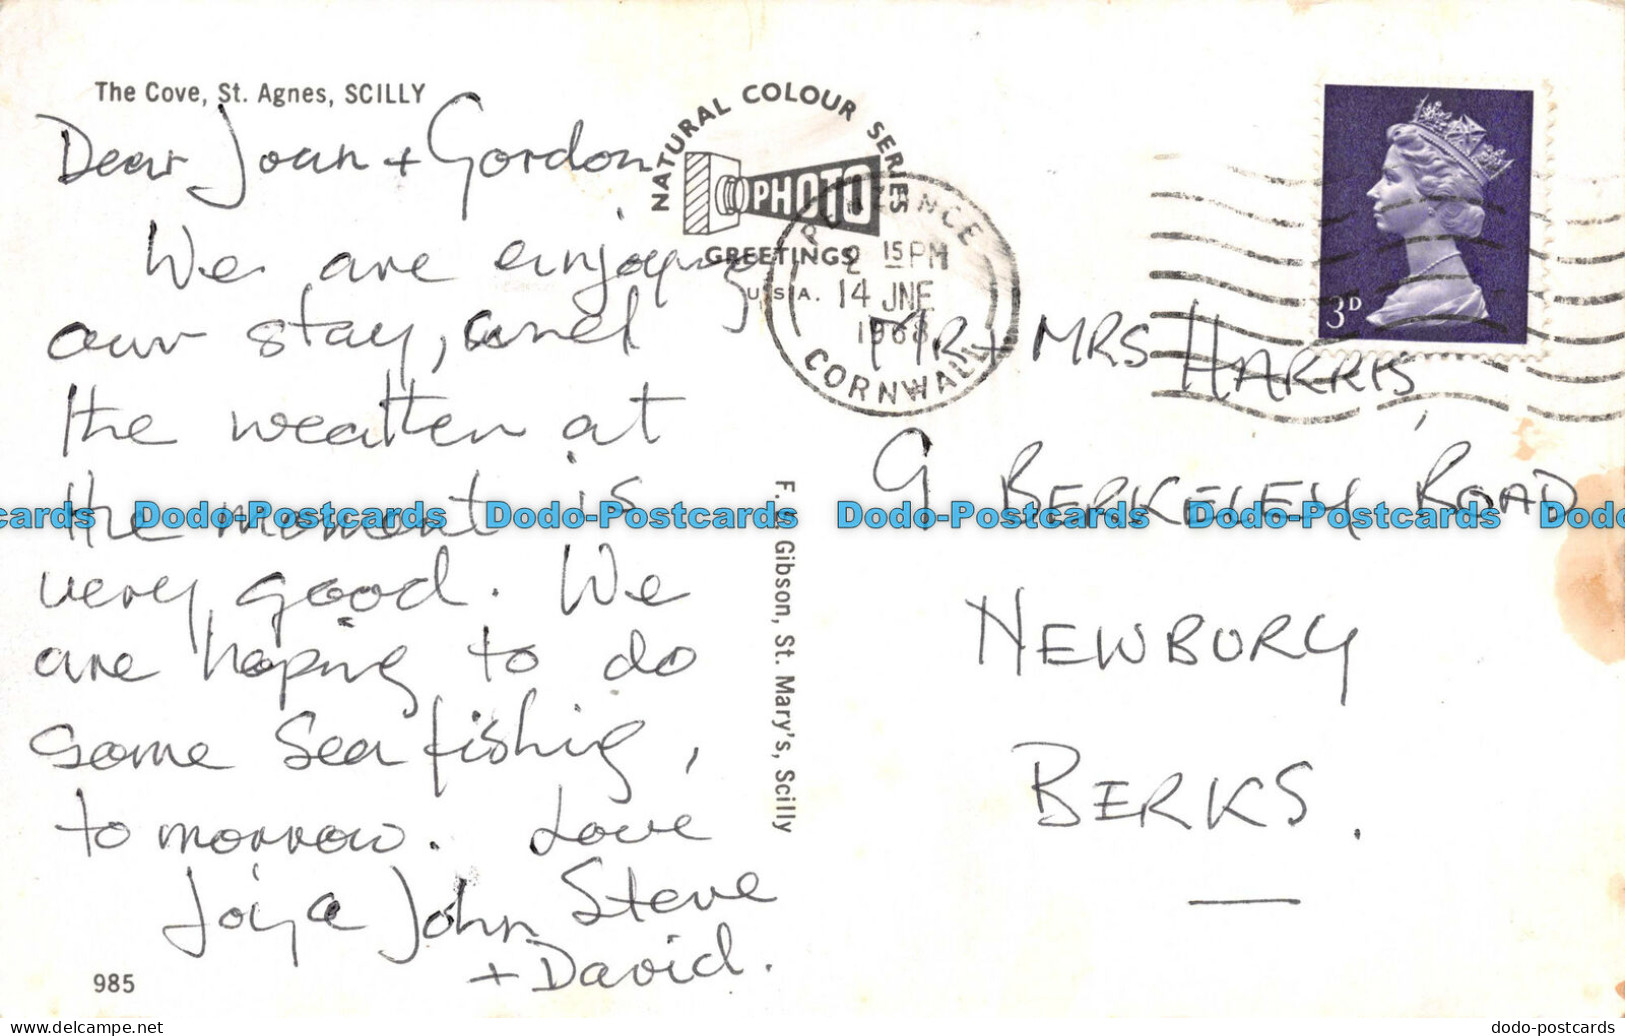 The Cove, St. Agnes, SCILLY
Dear Joan + Gordon
We are enjoying
our stay, and
the weather at
the moment is
very good. We
are hoping to do
some sea fishing,
tomorrow. Love
John Steve
+ David.
985
NATURAL COLOUR SERIES
PHOTO
GREETINGS
U.S.A.
PENZANCE
2 15 PM
14 JNE
1968
CORNWALL
F. E. Gibson, St. Mary's, Scilly
3D
MR + MRS HARRIS,
9 BERKELEY ROAD
NEWBURY
BERKS.
cards Dodo-Postcards Dodo-Postcards Dodo-Postcards Dodo-Postcards Do
dodo-postcards.delcampe.net
dodo-postcards